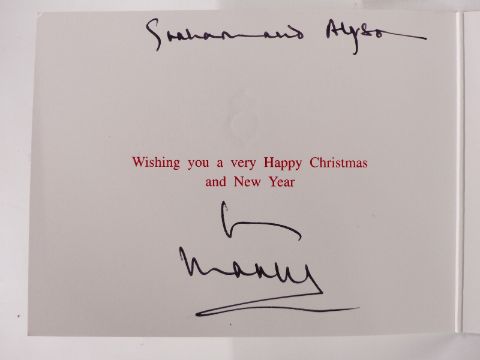 Graham and Alyson
Wishing you a very Happy Christmas
and New Year